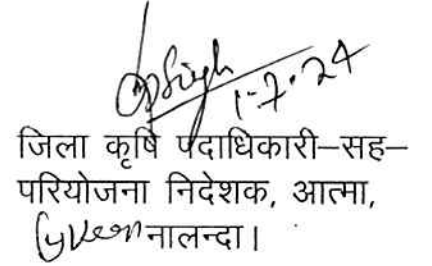 Singh
1-7-24
जिला कृषि पदाधिकारी–सह–
परियोजना निदेशक, आत्मा,
नालन्दा।